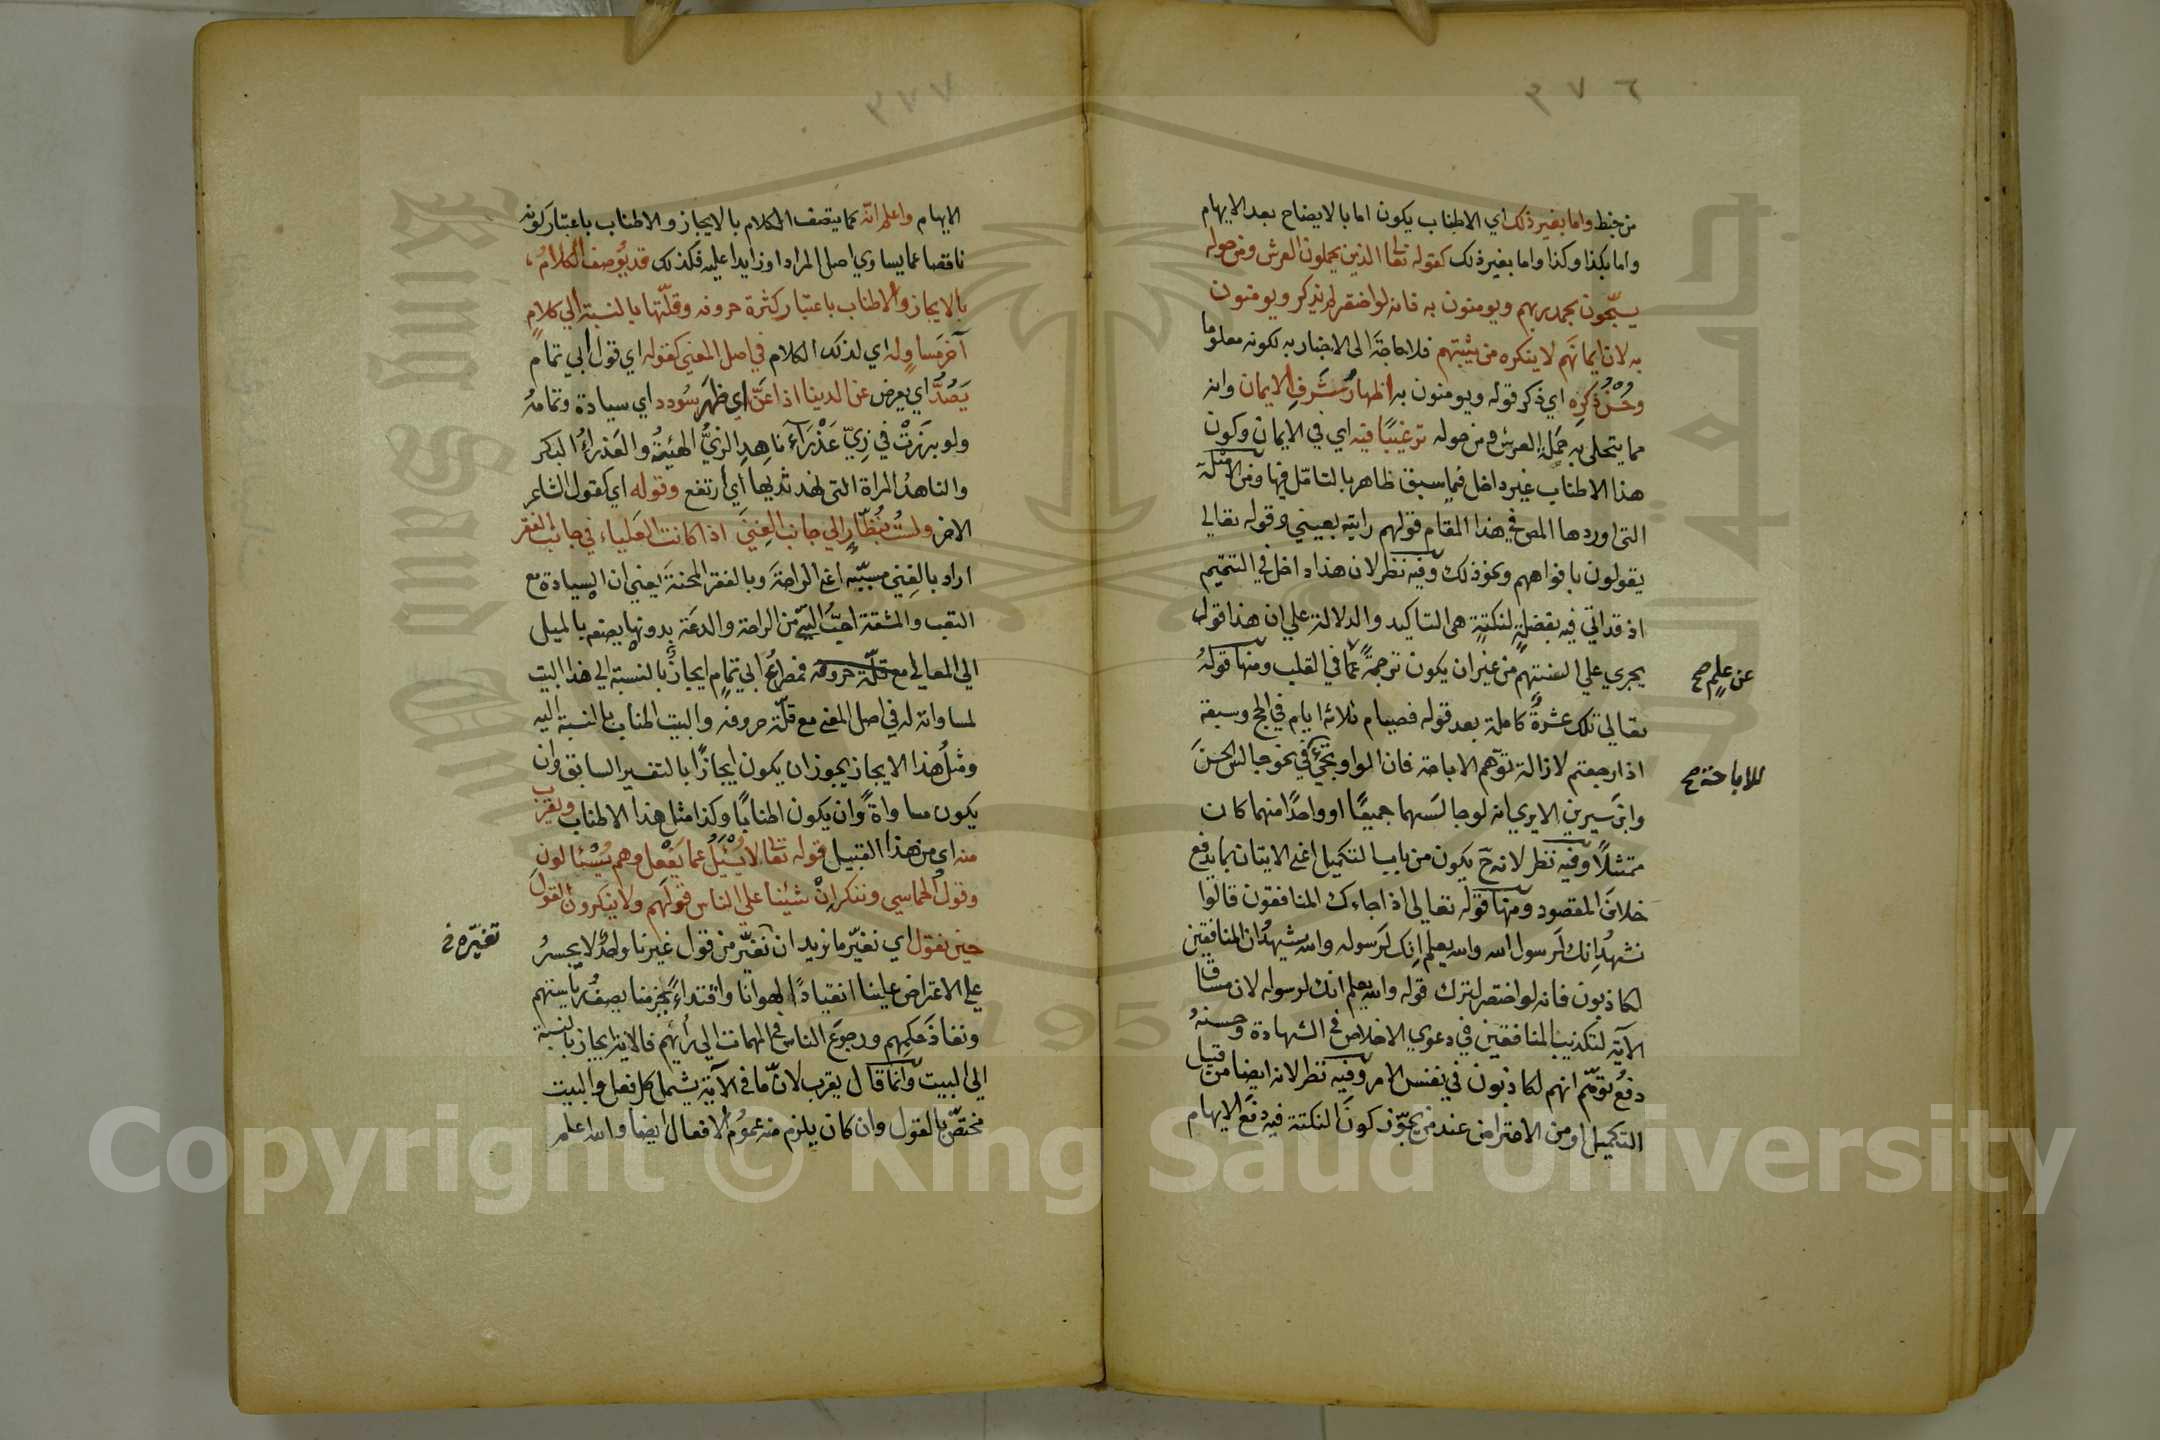 من خبط واما بغير ذلك اي الاطناب يكون اما بالايضاح بعد الابهام
واما بكذا وكذا واما بغير ذلك كقوله تعا الذين يحملون العرش ومن حوله
يسبّحون بحمد ربهم ويومنون به فانه لو اختصر لم يذكر ويومنون
به لان ايمانهم لا ينكره من يثبتهم فلا حاجة الى الاخبار به لكونه معلوما
وحُسْنُ ذِكرِه اي ذكر قوله ويومنون به اظهارُ شَرفِ الايمان وانه
مما يتحلى به حملة العرش ومن حوله ترغيبًا فيه اي في الايمان وكون
هذا الاطناب غير داخل فيما سبق ظاهر بالتامّل فيها ومن الامثلة
التى اوردها المص في هذا المقام قولهم رايته بعيني وقوله تعالي
يقولون بافواههم ونحو ذلك وفيه نظر لان هذا داخل في التتميم
اذ قد اتي فيه بفضلةٍ لنكتةٍ هى التاكيد والدلالة علي ان هذا قول
يجري علي السنتهم من غير ان يكون ترجمةً عمّا في القلب ومنها قولهُ
عن علم صح
تعالي تلك عشرةٌ كاملة بعد قوله فصيام ثلاثة ايام في الحج وسبعة
اذا رجعتم لازالة توّهم الاباحة فان الواو تجئ في نحو جالس الحسنَ
للاباحة صح
وابنَ سيرين الا يري انه لو جالسهما جميعًا او واحدًا منهما كان
ممتثلاً وفيه نظر لانه ح يكون من باب التكميل اعنى الاتيان بما يدفع
خلافَ المقصود ومنها قوله تعالي اذا جاءك المنافقون قالوا
نشهدُ انك لرسول الله والله يعلم انك لَرسوله والله يشهدُ ان المنافقين
لكاذبون فانه لو اختصر لترك قوله والله يعلم انك لرسوله لان مساق
الآيه لتكذيب المنافقين في دعوي الاخلاص في الشهادة وحسنهُ
دفعُ توهّم انهم لكاذبون في نفس الامر وفيه نظر لانه ايضا من قبيل
التكميل او من الاعتراض عند من يجوّز كونَ النكتة فيه دفعَ الايهام
الايهام واعلم انّه كما يتصف الكلام بالايجاز والاطناب باعتبار كونه
ناقصا عما يساوي اصل المراد او زايدا عليه فكذلك قد يُوصف الكلامُ
بالايجاز والاطناب باعتبار كثرة حروفه وقلّتها بالنسبة الي كلامٍ
آخر مساوٍ له اي لذلك الكلام في اصل المعني كقوله اي قول ابي تمام
يَصُدُّ اي يعرض عن الدينا اذا عَنّ اي ظهر سُودد اي سيادة وتمامهُ
ولو برَزتْ في زِيّ عَذْرَاءَ ناهِدِ الزيُّ الهيئةُ والعذراءُ البكر
والناهدُ المراة التى نهد ثديها اي ارتفع وقوله اي كقول الشاعر
الاخر ولستُ بنُظّارٍ الي جانب الغِنى اذا كانت العَلياء في جانب الفقر
اراد بالغِني مسبّبه اعنى الراحة وبالفقر المحنةَ يعني ان السيادة مع
التعب والمشقة احبّ اليّ من الراحة والدعَة بدونها يصفه بالميل
الي المعالي مع قلّة حروفه فمصراعُ ابي تمام ايجازٌ بالنسبة الي هذا البيت
لمساواته له في اصل المعني مع قلّة حروفه والبيت اطناب بالنسبة اليه
ومثلُ هذا الايجاز يجوز ان يكون ايجازًا بالتفسير السابق وان
يكون مساواةً وان يكون اطنابًا وكذا مثل هذا الاطناب ويقرب
منه اي من هذا القبيل قوله تعا لا يُسْئَلُ عما يَفعل وهم يُسْئالون
وقول الحماسي وننكر انْ شئينا علي الناس قولهم ولا ينكرون القول
حين نقول اي نغيّر ما نريد ان نغيّر من قول غيرنا واحدٌ لا يجسرُ
تغيّره خ
علي الاعتراض علينا انقيادًا لهوانا واقتداءً بجزمنا يصفُ رياستهم
ونفاذَ حكمهم ورجوعَ الناس في المهمات الي رأيهم فالاية ايجاز بالنسبة
الي البيت وانما قال يقرب لان ما في الآية يشمل كل فعل والبيت
مختصّ بالقول وان كان يلزم منه عمومُ الافعال ايضا والله اعلم
Copyright © King Saud University
1957